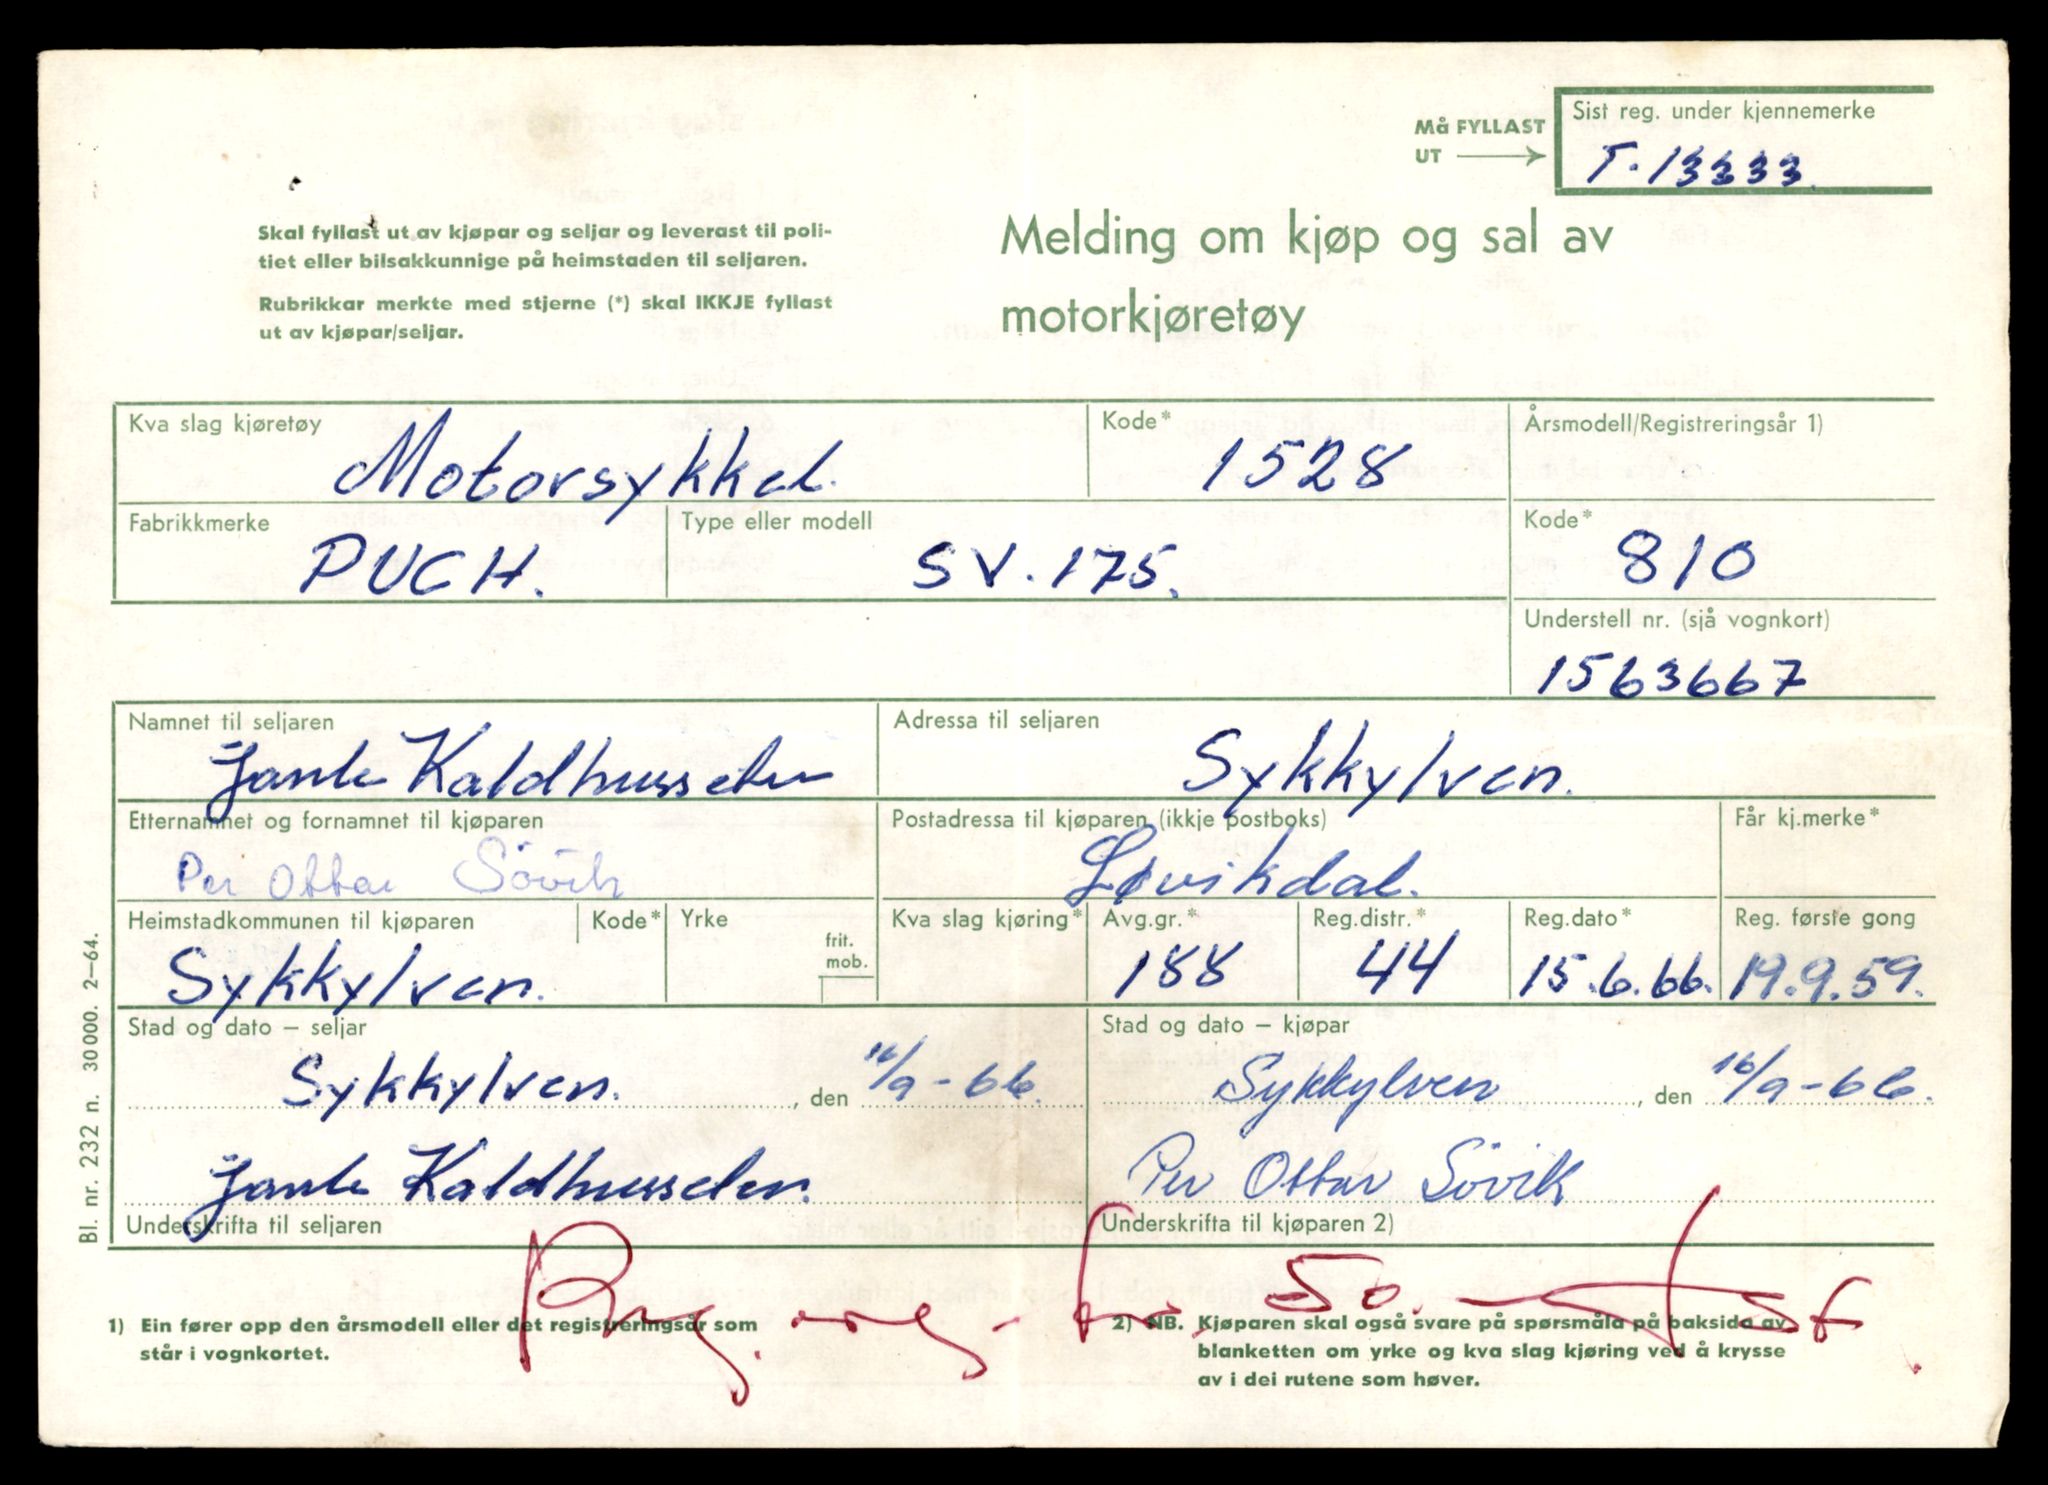 Må FYLLAST
UT
Sist reg. under kjennemerke
T-13333.
Skal fyllast ut av kjøpar og seljar og leverast til poli-
tiet eller bilsakkunnige på heimstaden til seljaren.
Rubrikkar merkte med stjerne (*) skal IKKJE fyllast
ut av kjøpar/seljar.
Melding om kjøp og sal av
motorkjøretøy
Kva slag kjøretøy
Motorsykkel.
Kode*
1528
Årsmodell/Registreringsår 1)
Fabrikkmerke
PUCH.
Type eller modell
SV.175.
Kode*
810
Understell nr. (sjå vognkort)
1563667
Namnet til seljaren
Kaldhusseter
Adressa til seljaren
Sykkylven.
Etternamnet og fornamnet til kjøparen
Per Ottar Sövik
Postadressa til kjøparen (ikkje postboks)
Løvikdal.
Får kj.merke*
Heimstadkommunen til kjøparen
Sykkylven.
Kode*
Yrke
frit.
mob.
Kva slag kjøring*
Avg.gr.*
188
Reg.distr.*
44
Reg.dato*
15.6.66.
Reg. første gong
19.9.59.
Stad og dato – seljar
Sykkylven. , den 16/9-66.
Stad og dato – kjøpar
Sykkylven , den 16/9-66.
Kaldhusseter.
Underskrifta til seljaren
Per Ottar Sövik
Underskrifta til kjøparen 2)
1) Ein fører opp den årsmodell eller det registreringsår som
står i vognkortet.
2) NB. Kjøparen skal også svare på spørsmåla på baksida av
blanketten om yrke og kva slag kjøring ved å krysse
av i dei rutene som høver.
Bl. nr. 232 n. 30 000. 2–64.